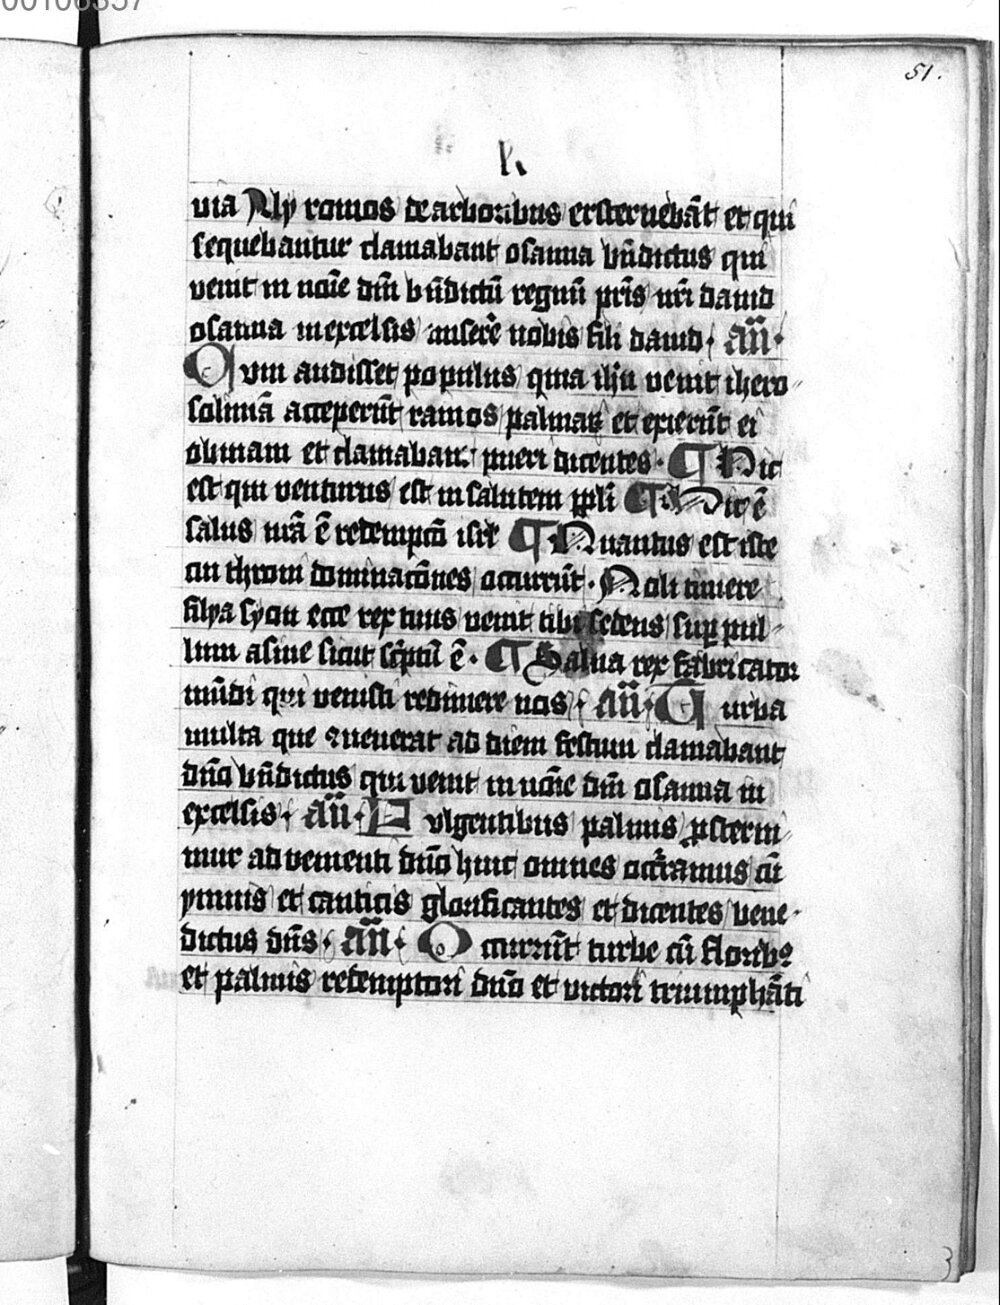 00106357
51.
l.
via Aly ramos de arboribus exsternebāt et qui
sequebantur clamabant osanna bn̄dictus qui
venit in noīe dn̄i bn̄dictū regnū pr̄is nr̄i dauid
osanna in excelsis miserēe nobis fili dauid · an̄ ·
Cum audisset populus quia ihūs venit ihero-
solimā acceperūt ramos palmaꝝ et exierūt ei
obuiam et clamabant pueri dicentes · ¶ Hic
est qui venturus est in salutem ppl̄i ¶ Hic ē
salus nr̄a ē redempcō isr̄l ¶ Quantus est iste
cui throni dominacōnes occurrūt · Noli timere
filya syon ecce rex tuus venit tibi sedens suꝑ pul-
lum asine sicut sc̄ptū ē · ¶ Salua rex fabricator
mūdi qui venisti redimere nos · an̄ · Turba
multa que ꝯuenerat ad diem festum clamabant
dn̄o bn̄dictus qui venit in noīe dn̄i osanna in
excelsis · an̄ · Fulgentibus palmis ꝓsterni-
mur aduenienti dn̄o huic omnes occ̄ramus cū
ymnis et canticis glorificantes et dicentes bene-
dictus dn̄s · an̄ · Occurrūt turbe cū floribꝰ
et palmis redemptori dn̄o et victori triumphāti
3